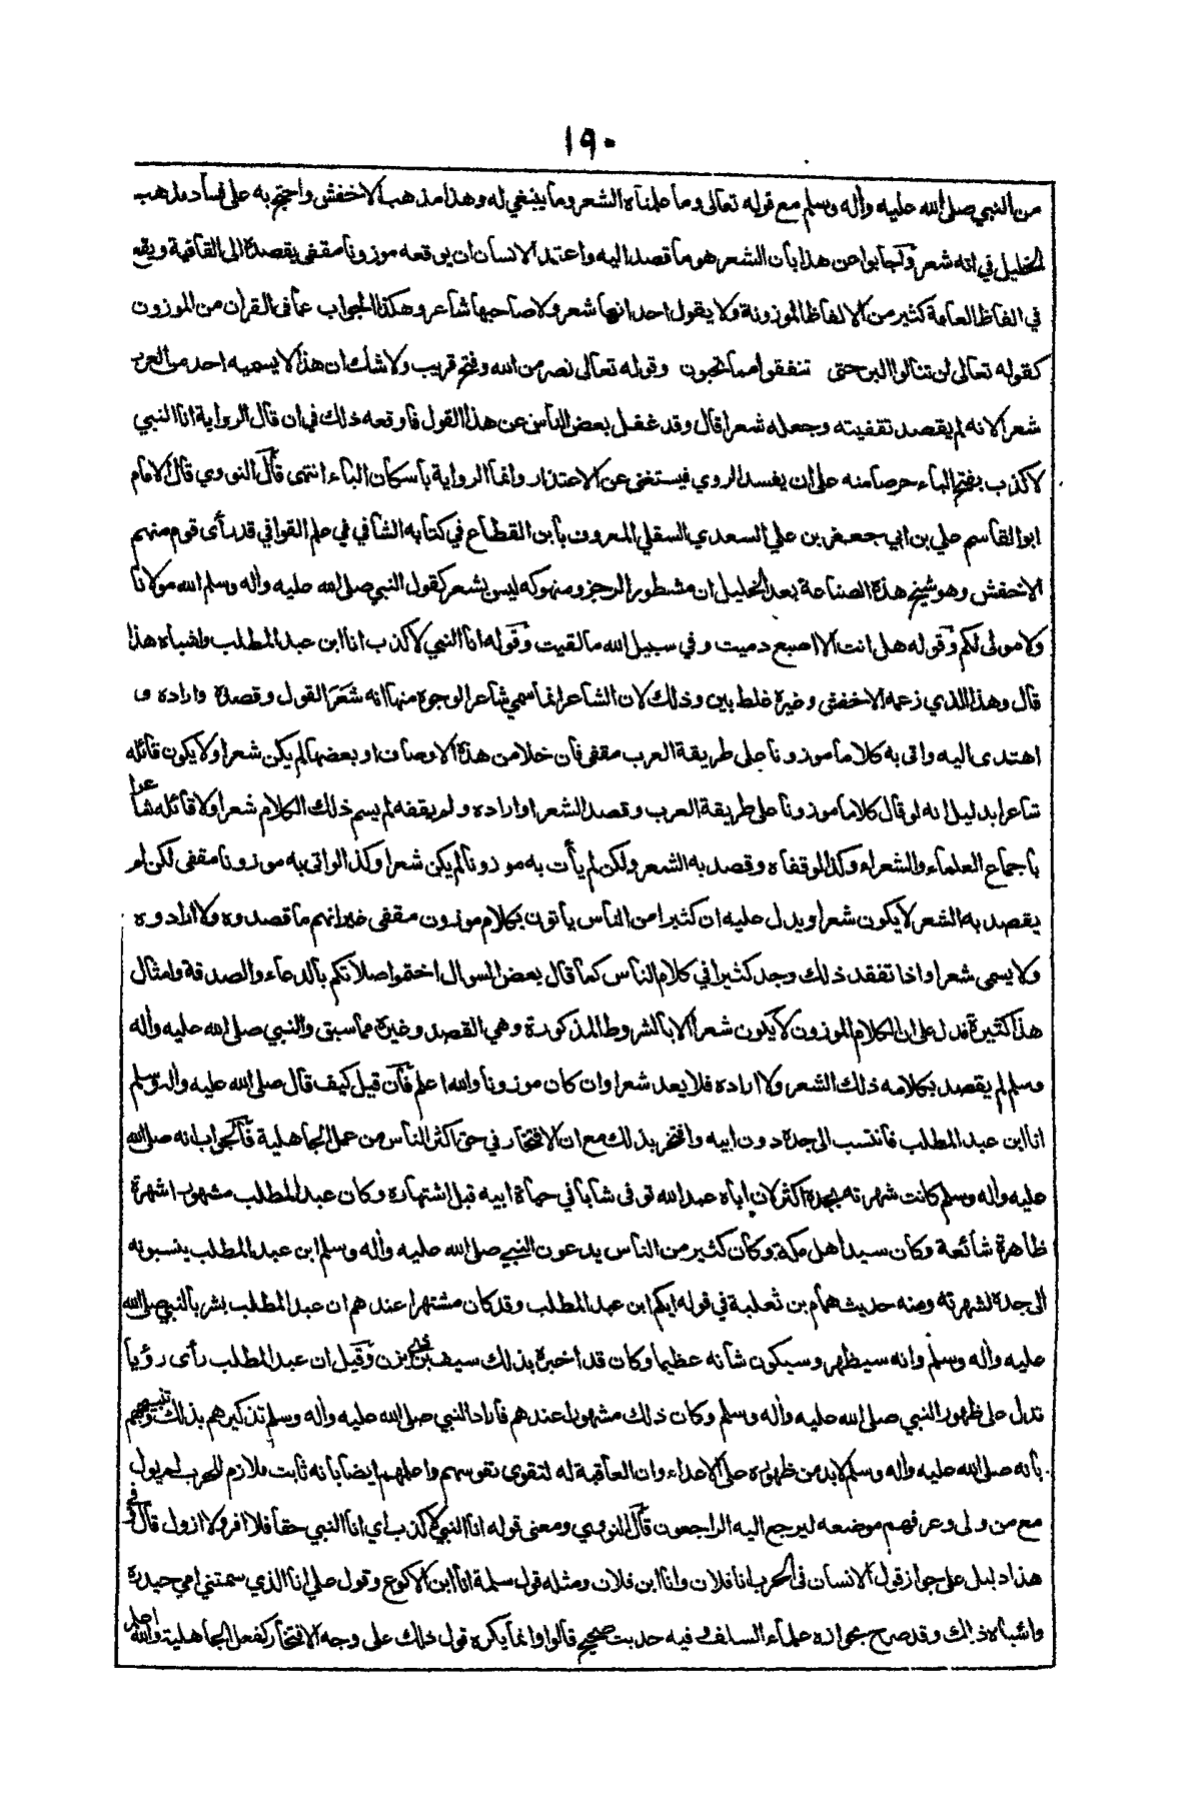 ١٩٠
من النبي صلى الله عليه وأله وسلم مع قوله تعالى وما علمناه الشعر وما ينبغي له وهذا مذهب الاخفش واحتج به على فساد مذهب
الخليل في انه شعر وأجابوا عن هذا بأن الشعر هو ما قصد اليه واعتمد الانسان ان يوقعه موزونا مقفى يقصدة الى القافية ويقع
في الفاظ العامة كثير من الالفاظ الموزونة ولا يقول احد انها شعر ولا صاحبها شاعر وهكذا الجواب عما فى القران من الموزون
كقوله تعالى لن تنالوا البر حتى تنفقوا مما تحبون وقوله تعالى نصر من الله وفتح قريب ولا شك ان هذا لا يسميه احد من العرب
شعرا لانه لم يقصد تقفيته وجعله شعرا قال وقد غفل بعض الناس عن هذا القول فاوقعه ذلك في ان قال الرواية انا النبي
لا كذب بفتح الباء حرصا منه على ان يفسد الروي فيستغنى عن الاعتذار وانما الرواية بأسكان الباء انتهى قال النووي قال الامام
ابو القاسم علي بن ابي جعفر بن علي السعدي السقلي المعروف بأبن القطاع في كتابه الشافي في علم القوافي قد رأى قوم منهم
الاخفش وهو شيخ هذة الصناعة بعد الخليل ان مشطور الرجز ومنهوكه ليس بشعر كقول النبي صلى الله عليه وأله وسلم الله مولانا
ولا مولى لكم وقوله هل انت الا اصبع دميت وفي سبيل الله ما لقيت وقوله انا النبي لا كذب انا ابن عبد المطلب واشباه هذا
قال وهذا الذي زعمه الاخفش وغيرة غلط بين وذلك لان الشاعر انما سمي شاعرا لوجوة منها انه شَعَرَ القول وقصدة واراده و
اهتدى اليه واتى به كلاما موزونا على طريقة العرب مقفى فأن خلا من هذة الاوصاف او بعضها لم يكن شعرا ولا يكون قائله
شاعرا بدليل انه لو قال كلاما موزونا على طريقة العرب وقصد الشعر او اراده ولم يقفه لم يسم ذلك الكلام شعرا ولا قائله شاعرا
بأجماع العلماء والشعراء وكذا لو قفاه وقصد به الشعر ولكن لم يأت به موزونا لم يكن شعرا وكذا لو اتى به موزونا مقفى لكن لم
يقصد به الشعر لا يكون شعرا ويدل عليه ان كثيرا من الناس يأتون بكلام موزون مقفى غير انهم ما قصدوه ولا ارادوه
ولا يسمى شعرا واذا تفقد ذلك وجد كثيرا في كلام الناس كما قال بعض السوال اختموا صلاتكم بالدعاء والصدقة وامثال
هذا كثيرة فدل على ان الكلام الموزون لا يكون شعرا الا بالشروط المذكورة وهي القصد وغيرة مما سبق والنبي صلى الله عليه وأله
وسلم لم يقصد بكلامه ذلك الشعر ولا اراده فلا يعد شعرا وان كان موزونا والله اعلم فأن قيل كيف قال صلى الله عليه وأله وسلم
انا ابن عبد المطلب فانتسب الى جدة دون ابيه وافتخر بذلك مع ان الافتخار في حق اكثر الناس من عمل الجاهلية فالجواب انه صلى الله
عليه وأله وسلم كانت شهرته بجدة اكثر لان اباه عبد الله توفى شابا في حياة ابيه قبل اشتهاره وكان عبد المطلب مشهورا شهرة
ظاهرة شائعة وكان سيد اهل مكة وكأن كثير من الناس يدعون النبي صلى الله عليه وأله وسلم ابن عبد المطلب ينسبونه
الى جدة لشهرته ومنه حديث همام بن ثعلبة في قوله ايكم ابن عبد المطلب وقد كان مشتهرا عندهم ان عبد المطلب بشر بالنبي صلى الله
عليه وأله وسلم وانه سيظهر وسيكون شأنه عظيما وكان قد اخبره بذلك سيف بن ذي يزن وقيل ان عبد المطلب رأى رؤيا
تدل على ظهور النبي صلى الله عليه وأله وسلم وكان ذلك مشهورا عندهم فأراد النبي صلى الله عليه وأله وسلم تذكيرهم بذلك وتنبيههم
بأنه صلى الله عليه وأله وسلم لابد من ظهوره على الاعداء وان العاقبة له لتقوى نفوسهم واعلمهم ايضا بأنه ثابت ملازم للحرب لم يول
مع من ولى وعرفهم موضعه ليرجع اليه الراجعون قال النووي ومعنى قوله انا النبي لا كذب اي انا النبي حقا فلا افر ولا ازول قال وفي
هذا دليل على جواز قول الانسان فى الحرب انا فلان وانا ابن فلان ومثله قول سلمة انا ابن الاكوع وقول علي انا الذي سمتني امي حيدرة
واشباه ذلك وقد صرح بجوازه علماء السلف وفيه حديث صحيح قالوا وانما يكره قول ذلك على وجه الافتخار كفعل الجاهلية والله اعلم